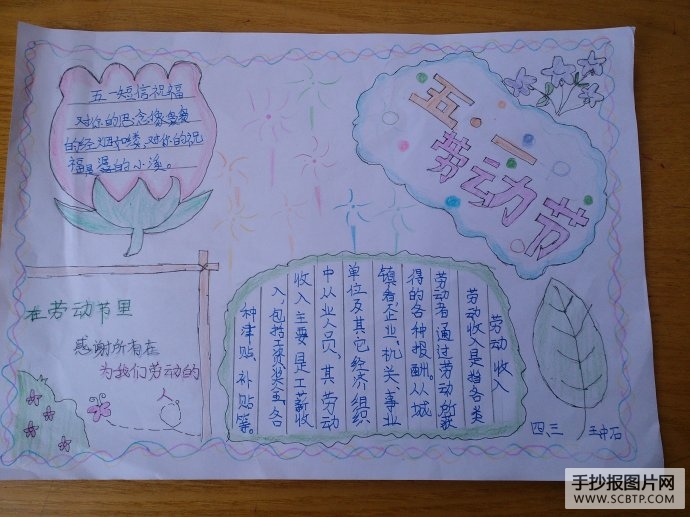 五·一
劳动节
五一短信祝福
对你的思念像
的经 对你的祝
福是 的小溪。
在劳动节里
感谢所有在
为我们劳动的
人
劳动收入
劳动收入是指各类
劳动者通过劳动所获
得的各种报酬。从城
镇看企业、机关、事业
单位及其它经济组织
中从业人员,其劳动
收入主要是工薪收
入,包括工资奖金、各
种津贴、补贴等。
四、三
手抄报图片网
WWW.SCBTP.COM